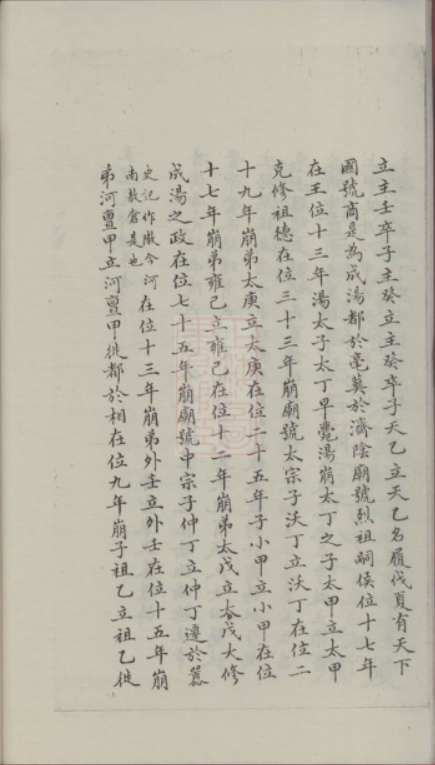 立主壬卒子主癸立主癸卒子天乙立天乙名履伐夏有天下
國號商是為成湯都於亳葬於濟陰廟號烈祖嗣侯位十七年
在王位十三年湯太子太丁早薨湯崩太丁之子太甲立太甲
克修祖德在位三十三年崩廟號太宗子沃丁立沃丁在位二
十九年崩弟太庚立太庚在位二十五年子小甲立小甲在位
十七年崩弟雍己立雍己在位十二年崩弟太戊立太戊大修
成湯之政在位七十五年崩廟號中宗子仲丁立仲丁遷於囂
史記作隞今河
南敖倉是也
在位十三年崩弟外壬立外壬在位十五年崩
弟河亶甲立河亶甲徙都於相在位九年崩子祖乙立祖乙徙